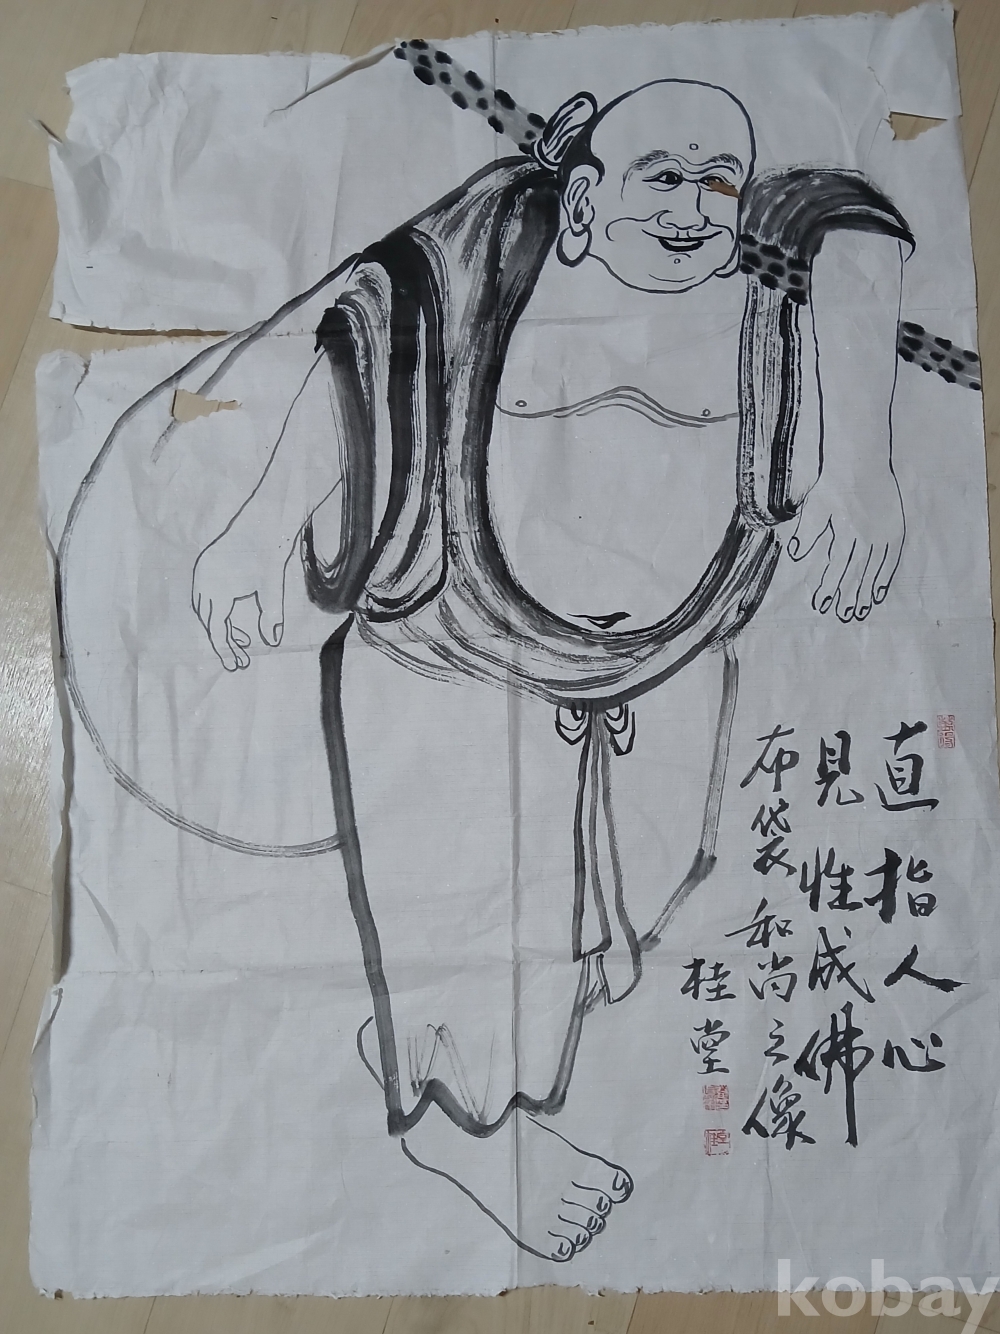 直指人心
見性成佛
布袋和尚之像
桂堂
kobay